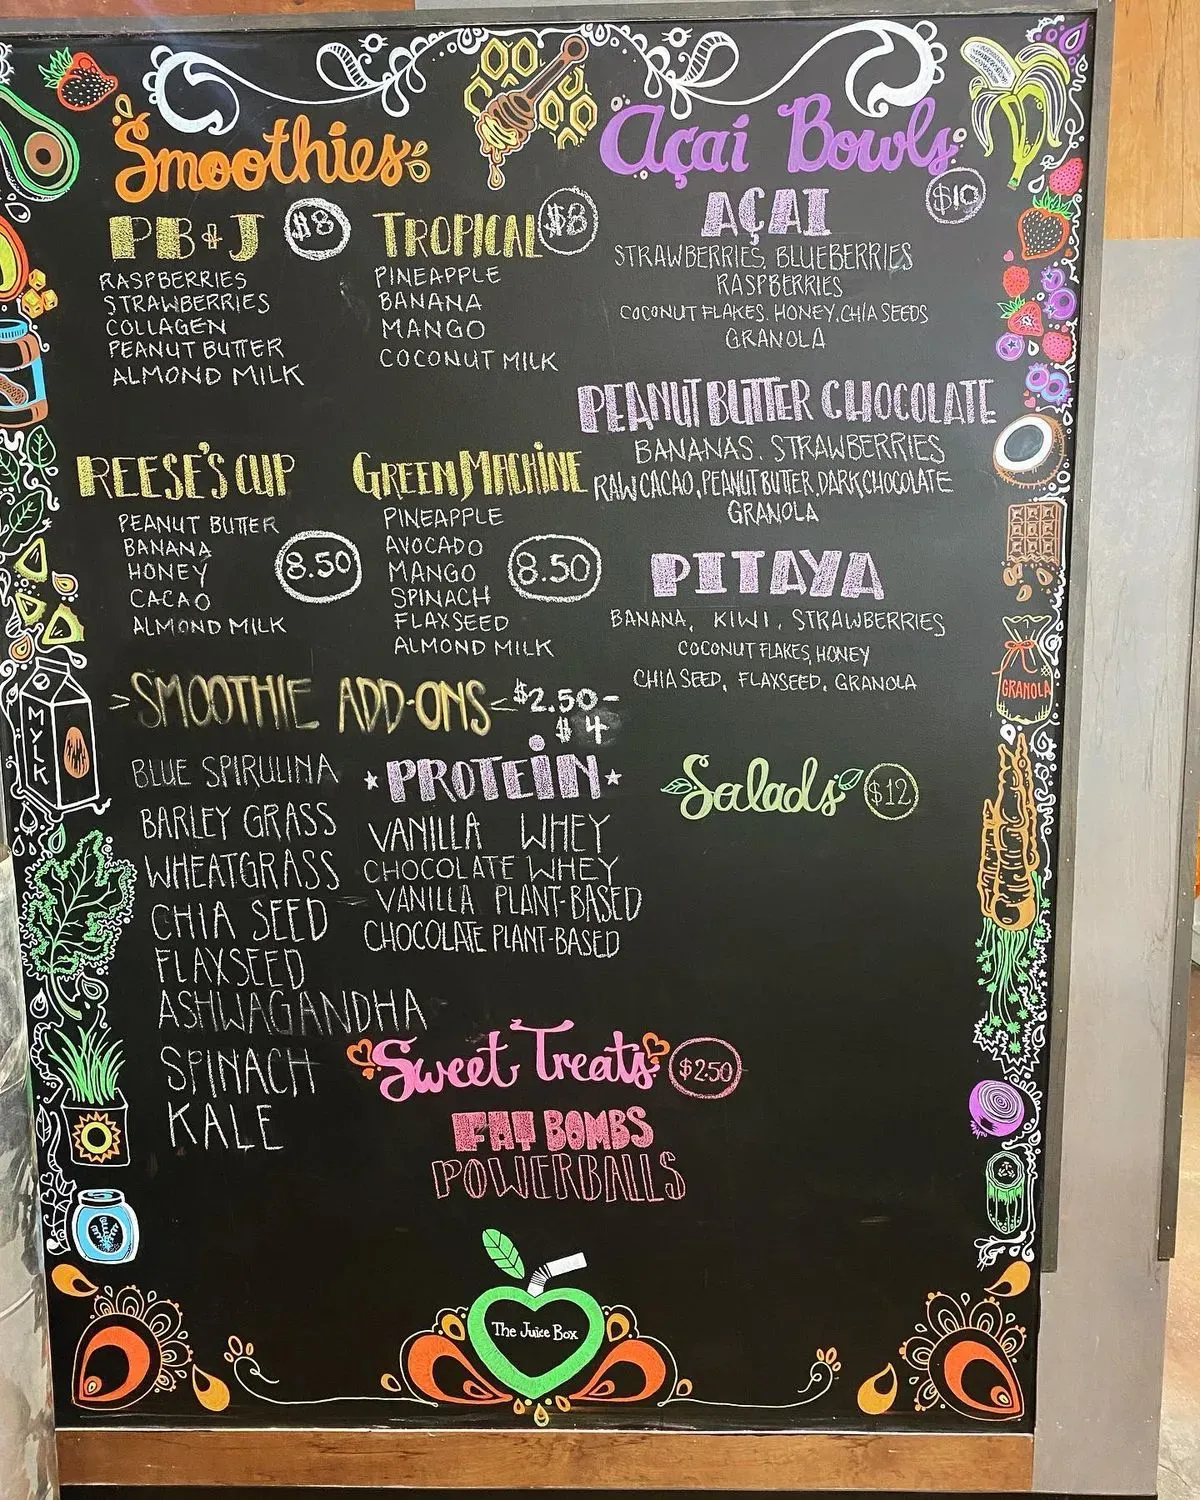 Smoothies
PB+J $8
RASPBERRIES
STRAWBERRIES
COLLAGEN
PEANUT BUTTER
ALMOND MILK
TROPICAL $8
PINEAPPLE
BANANA
MANGO
COCONUT MILK
REESE'S CUP
PEANUT BUTTER
BANANA
HONEY
CACAO
ALMOND MILK
8.50
GREEN MACHINE
PINEAPPLE
AVOCADO
MANGO
SPINACH
FLAXSEED
ALMOND MILK
8.50
>SMOOTHIE ADD-ONS< $2.50-
$4
BLUE SPIRULINA
BARLEY GRASS
WHEATGRASS
CHIA SEED
FLAXSEED
ASHWAGANDHA
SPINACH
KALE
PROTEIN
VANILLA WHEY
CHOCOLATE WHEY
VANILLA PLANT-BASED
CHOCOLATE PLANT-BASED
Açaí Bowls
$10
AÇAI
STRAWBERRIES, BLUEBERRIES
RASPBERRIES
COCONUT FLAKES, HONEY, CHIA SEEDS
GRANOLA
PEANUT BUTTER CHOCOLATE
BANANAS, STRAWBERRIES
RAW CACAO, PEANUT BUTTER, DARK CHOCOLATE
GRANOLA
PITAYA
BANANA, KIWI, STRAWBERRIES
COCONUT FLAKES, HONEY
CHIA SEED, FLAXSEED, GRANOLA
Salads $12
Sweet Treats $2.50
FAT BOMBS
POWERBALLS
MYLK
GRANOLA
The Juice Box